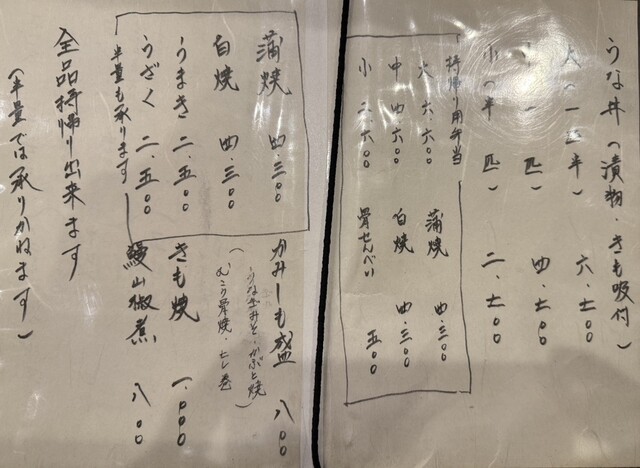 うな丼(漬物・きも吸付)
大(一匹半) 六.七〇〇
中(一匹) 四.七〇〇
小(半匹) 二.七〇〇
持帰り用弁当
大 六.六〇〇
中 四.六〇〇
小 二.六〇〇
蒲焼 四.三〇〇
白焼 四.三〇〇
骨せんべい 五〇〇
蒲焼 四.三〇〇
白焼 四.三〇〇
うまき 二.五〇〇
うざく 二.五〇〇
半量も承ります
かみしも盛 八〇〇
かぶと焼
骨焼・ヒレ巻)
きも焼 一.〇〇〇
鰻山椒煮 八〇〇
全品持帰り出来ます
(半量では承りかねます)